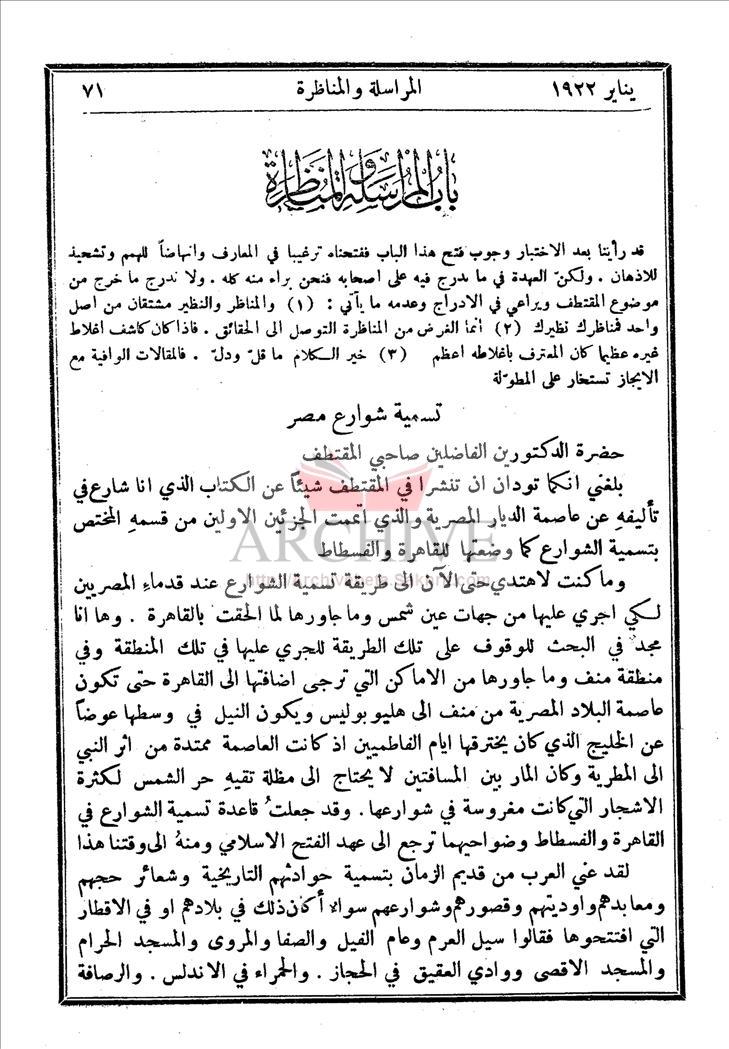 يناير ١٩٢٢ المراسلة والمناظرة ٧١
باب المراسلة والمناظرة
قد رأينا بعد الاختبار وجوب فتح هذا الباب ففتحناه ترغيبا في المعارف وانهاضاً للهمم وتشحيذ
للاذهان . ولكنّ العهدة في ما يدرج فيه على اصحابه فنحن براء منه كله . ولا ندرج ما خرج من
موضوع المقتطف ويراعي في الادراج وعدمه ما يأتي : (١) والمناظر والنظير مشتقان من اصل
واحد فمناظرك نظيرك (٢) انما الغرض من المناظرة التوصل الى الحقائق . فاذا كان كاشف اغلاط
غيره عظيما كان المعترف باغلاطه اعظم (٣) خير الكلام ما قلّ ودلّ . فالمقالات الوافية مع
الايجاز تستخار على المطوّلة
تسمية شوارع مصر
حضرة الدكتورين الفاضلين صاحبي المقتطف
بلغني انكما تودان ان تنشرا في المقتطف شيئاً عن الكتاب الذي انا شارع في
تأليفهِ عن عاصمة الديار المصرية والذي اتممت الجزئين الاولين من قسمهِ المختص
بتسمية الشوارع كما وضعتها للقاهرة والفسطاط
وما كنت لاهتدي حتى الآن الى طريقة تسمية الشوارع عند قدماءِ المصريين
لكي اجري عليها من جهات عين شمس وما جاورها لما الحقت بالقاهرة . وها انا
مجد في البحث للوقوف على تلك الطريقة للجري عليها في تلك المنطقة وفي
منطقة منف وما جاورها من الاماكن التي ترجى اضافتها الى القاهرة حتى تكون
عاصمة البلاد المصرية من منف الى هليوبوليس ويكون النيل في وسطها عوضاً
عن الخليج الذي كان يخترقها ايام الفاطميين اذ كانت العاصمة ممتدة من اثر النبي
الى المطرية وكان المار بين المسافتين لا يحتاج الى مظلة تقيهِ حر الشمس لكثرة
الاشجار التي كانت مغروسة في شوارعها . وقد جعلتُ قاعدة تسمية الشوارع في
القاهرة والفسطاط وضواحيهما ترجع الى عهد الفتح الاسلامي ومنهُ الى وقتنا هذا
لقد عني العرب من قديم الزمان بتسمية حوادثهم التاريخية وشعائر حجهم
ومعابدهم واوديتهم وقصورهم وشوارعهم سواء أكان ذلك في بلادهم او في الاقطار
التي افتتحوها فقالوا سيل العرم وعام الفيل والصفا والمروى والمسجد الحرام
والمسجد الاقصى ووادي العقيق في الحجاز . والحمراء في الاندلس . والرصافة
ARCHIVE